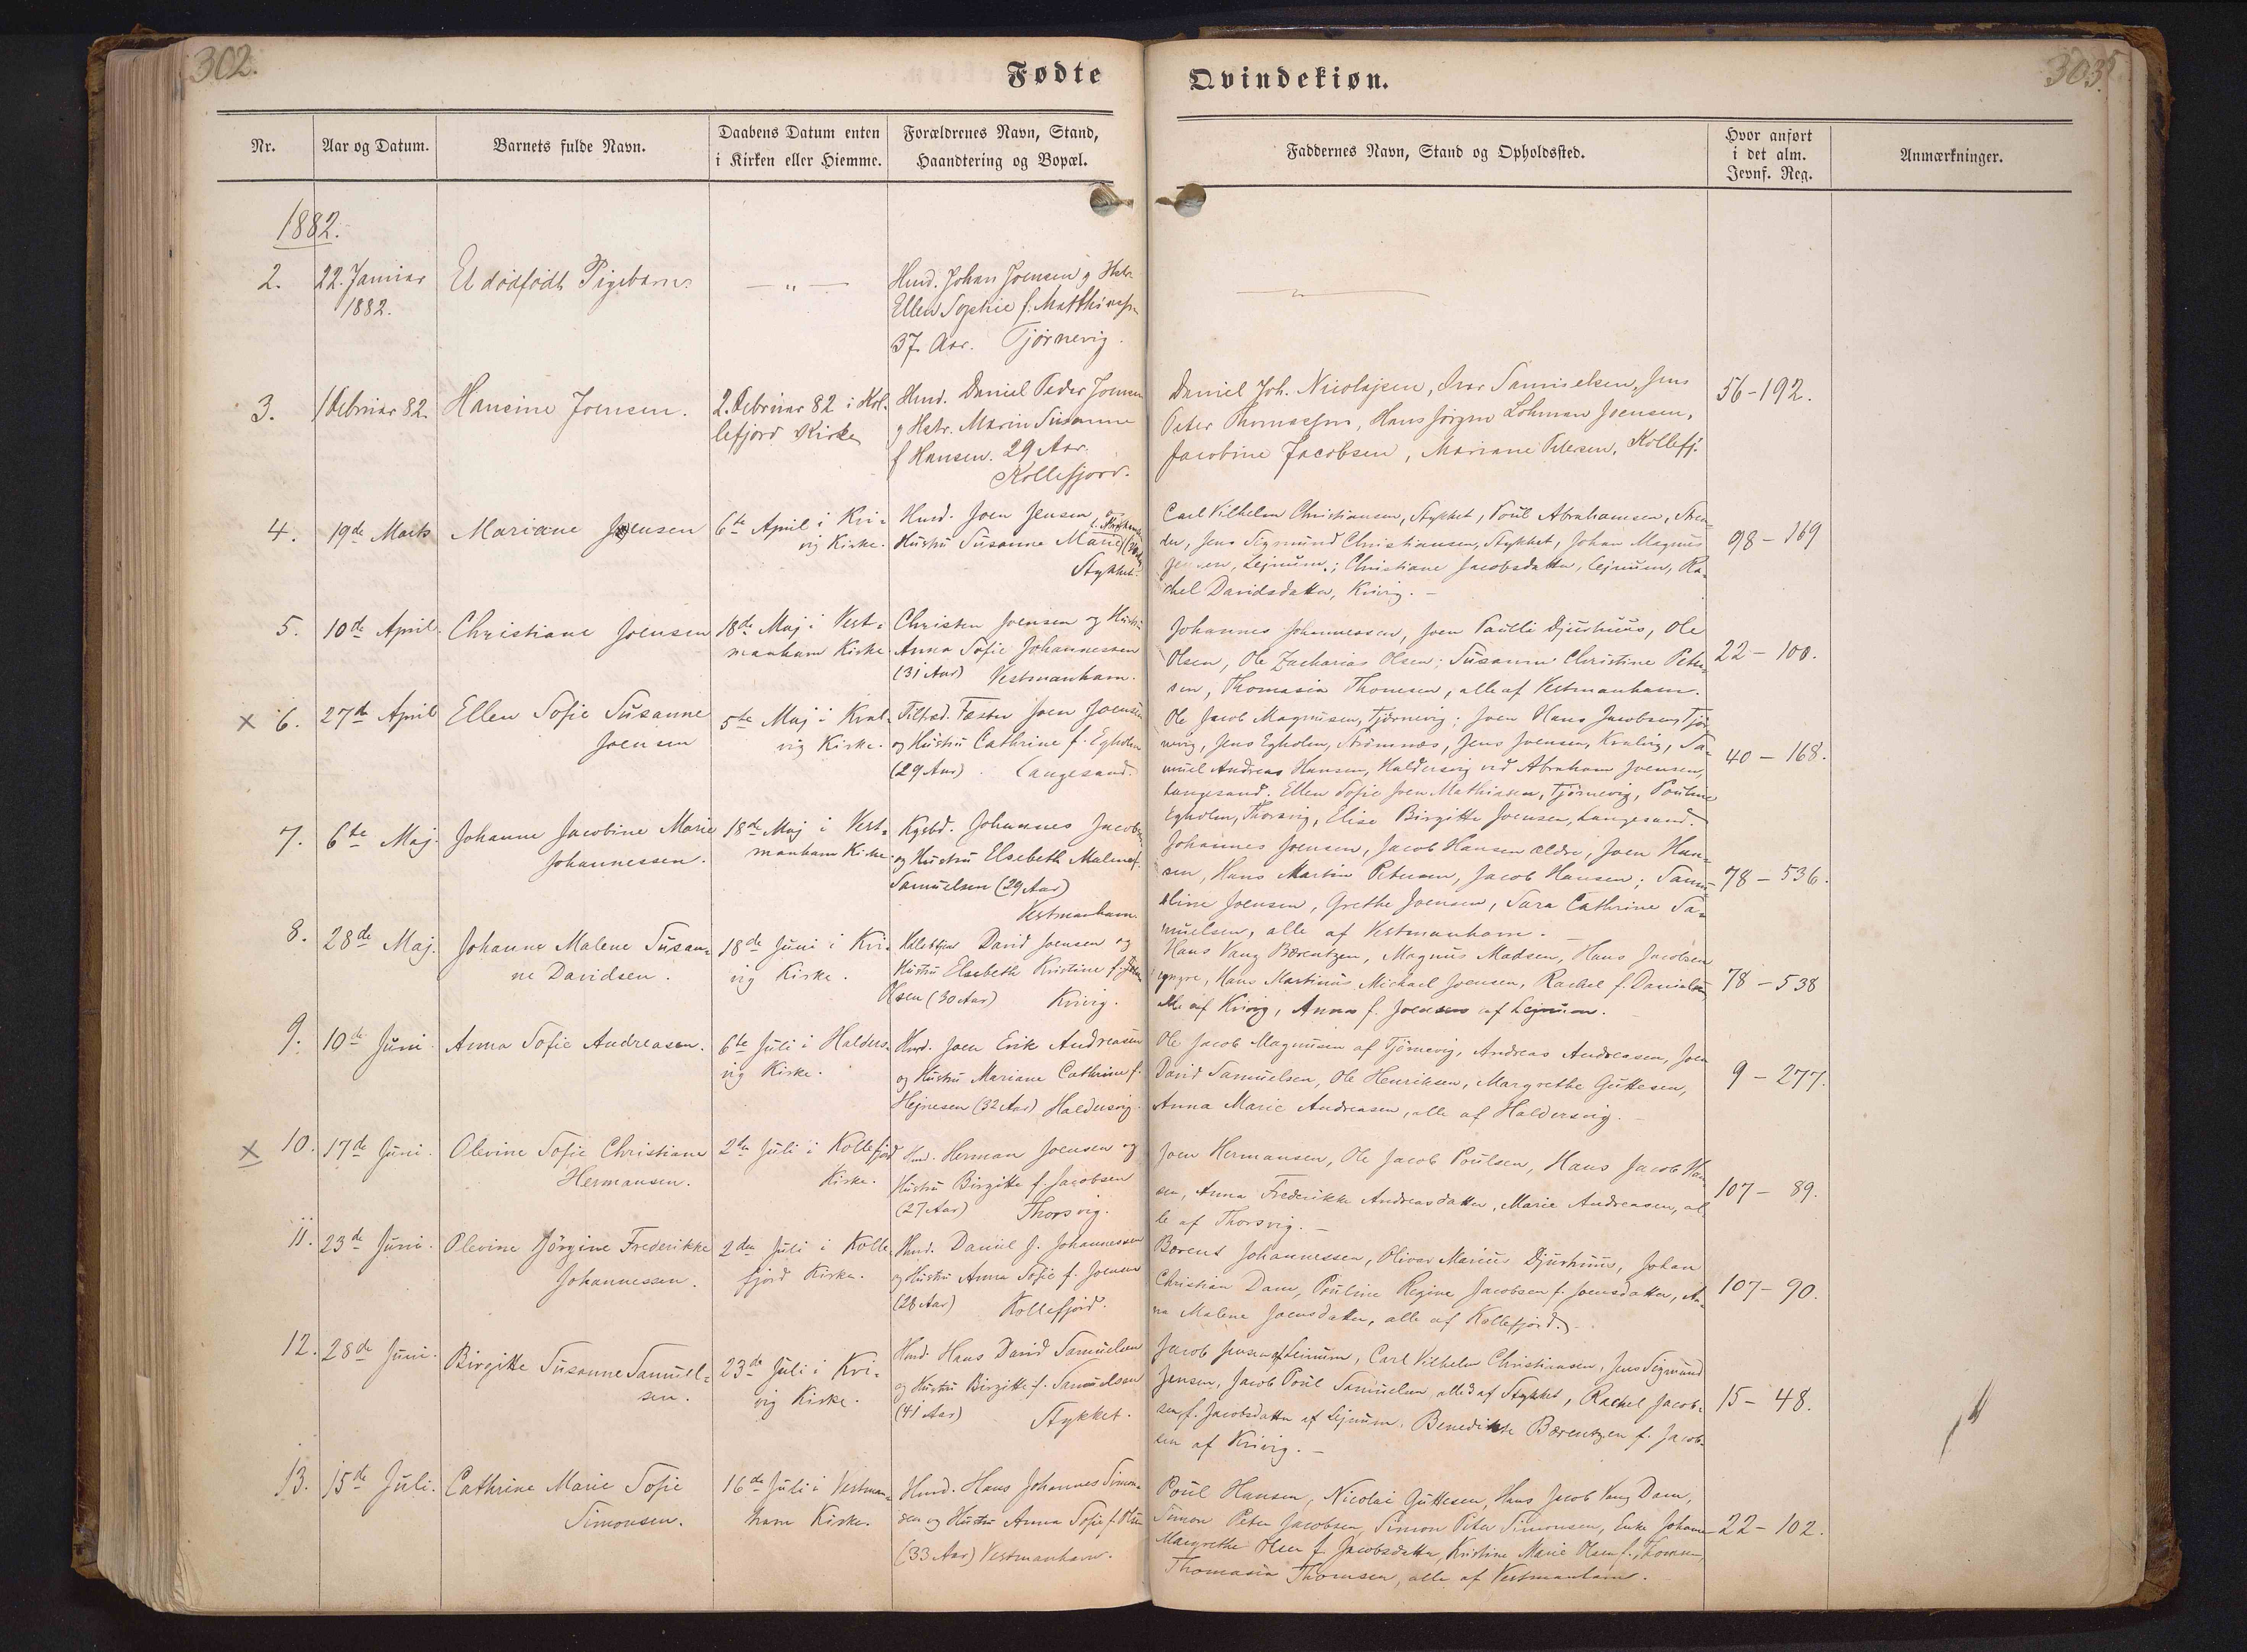 302.
303.
Fødte
Qvindekiøn.
Nr.
Aar og Datum.
Barnets fulde Navn.
Daabens Datum enten
i Kirken eller Hiemme.
Forældrenes Navn, Stand,
Haandtering og Bopæl.
Faddernes Navn, Stand og Opholdssted.
Hvor anført
i det alm.
Jevnf. Reg.
Anmærkninger.
1882.
2.
22. Januar
1882.
Et dödfödt Pigebarn.
— „ —
Hmd. Johan Joensen g Hstr.
Ellen Sophie f.
37 Aar. Tjörnevig.
3.
1 Februar 82.
Hansine Joensen.
2. Februar 82 i Kol-
lefjord Kirke
Hmd. Daniel Peder Joensen
g Hstr. Maria Susanne
f Hansen. 29 Aar.
Kollefjord.
Daniel Joh. Nicolajsen, Ivar Samuelsen, Jens
Peter Thomassen, Hans Jörgen Lohman Joensen,
Jacobine Jacobsen, Mariane Petersen, Kollefj.
56-192.
4.
19de Marts
Mariane Joensen
6te April i Kvi-
vig Kirke.
Hmd. Joen Jensen og
Hustru Susanne Marie
Stykket.
Carl Vilhelm Christiansen, Stykket, Poul Abrahamsen,
Jens Sigmund Christiansen, Stykket, Johan Magnus
Lejnum; Christiane Jacobsdatter, Lejnum, Ra-
chel Davidsdatter, Kvivig. —
98 - 169
5.
10de April.
Christiane Joensen
18de Maj i Vest-
manhavn Kirke.
Christen Joensen og Hustru
Anna Sofie Johannessen
(31 Aar) Vestmanhavn.
Johannes Johannessen, Joen Paulli Djurhuus, Ole
Olsen, Ole Zacharias Olsen; Susanne Christine Peter-
sen, Thomasia Thomsen, alle af Vestmanhavn.
22 - 100.
x 6.
27de April
Ellen Sofie Susanne
Joensen
5te Maj i Kval-
vig Kirke.
Fæster Joen Joensen
og Hustru Cathrine f. Egholm
(29 Aar). Langesand.
Ole Jacob Magnusen, Tjörnevig; Joen Hans Jacobsen, Tjör-
nevig, Jens Egholm, Strömnæs, Jens Joensen, Kvalvig, Sa-
muel Andreas Hansen, Haldersvig ved Abraham Joensen,
Langesand. Ellen Sofie Joen Mathiasen, Tjörnevig, Pouline
Egholm, Thorsvig, Elise Birgitte Joensen, Langesand.
40 - 168.
7.
6te Maj.
Johanne Jacobine Marie
Johannessen.
18de Maj i Vest-
manhavn Kirke.
Johannes Jacobsen
og Hustru Elsebeth Malene f.
Samuelsen (29 Aar)
Vestmanhavn.
Johannes Joensen, Jacob Hansen ældre, Joen Han-
sen, Hans Martin Petersen, Jacob Hansen; Samu-
eline Joensen, Grethe Joensen, Sara Cathrine Sa-
muelsen, alle af Vestmanhavn. —
78 - 536.
8.
28de Maj.
Johanne Malene Susan-
ne Davidsen.
18de Juni i Kvi-
vig Kirke.
David Joensen og
Hustru Elsebeth Kristine f.
Olsen (30 Aar) Kvivig.
Hans Vang Bærentzen, Magnus Madsen, Hans Jacobsen
yngre, Hans Martinus Michael Joensen, Rachel f. Danielsen
alle af Kvivig, Anna f. Joensen af Lejnum.
78 - 538
9.
10de Juni.
Anna Sofie Andreasen.
6te Juli i Halders-
vig Kirke.
Hmd. Joen Erik Andreasen
og Hustru Mariane Cathrine f.
Hejnesen (32 Aar) Haldersvig.
Ole Jacob Magnusen af Tjörnevig, Andreas Andreasen, Joen
David Samuelsen, Ole Henriksen, Margrethe Guttesen,
Anna Marie Andreasen, alle af Haldersvig. —
9 - 277.
x 10.
17de Juni.
Olevine Sofie Christiane
Hermansen.
2den Juli i Kollefjord
Kirke.
Hmd. Herman Joensen og
Hustru Birgitte f. Jacobsen
(27 Aar) Thorsvig.
Joen Hermansen, Ole Jacob Poulsen, Hans Jacob Han-
sen, Anna Frederikke Andreasdatter, Marie Andreasen, al-
le af Thorsvig. —
107 - 89.
11.
23de Juni.
Olevine Jörgine Frederikke
Johannessen.
2den Juli i Kolle-
fjord Kirke.
Hmd. Daniel J. Johannessen
og Hustru Anna Sofie f. Joensen
(28 Aar) Kollefjord.
Bærent Johannessen, Oliver Marius Djurhuus, Johan
Christian Dam, Pouline Regine Jacobsen f. Joensdatter, An-
na Malene Joensdatter, alle af Kollefjord. —
107 - 90.
12.
28de Juni.
Birgitte Susanne Samuel-
sen.
23de Juli i Kvi-
vig Kirke.
Hmd. Hans David Samuelsen
og Hustru Birgitte f. Samuelsen
(41 Aar) Stykket.
Jacob Jensen af Leinum, Carl Vilhelm Christiansen, Jens Sigmund
Jensen, Jacob Poul Samuelsen, alle 3 af Stykket, Rachel Jacob-
sen f. Jacobsdatter af Lejnum. Benedikte Bærentzen f. Jacob-
sen af Kvivig. —
15 - 48.
13.
15de Juli.
Cathrine Marie Sofie
Simonsen.
16de Juli i Vestman-
havn Kirke.
Hmd. Hans Johannes Simon-
sen og Hustru Anna Sofie f. Olsen
(33 Aar) Vestmanhavn.
Poul Hansen, Nicolai Guttesen, Hans Jacob Vang Dam,
Simon Peter Jacobsen, Simon Peter Simonsen, Enke Johanne
Margrethe Olsen f. Jacobsdatter, Kristine Marie Olsen f. Thomsen,
Thomasia Thomsen, alle af Vestmanhavn.
22 - 102.